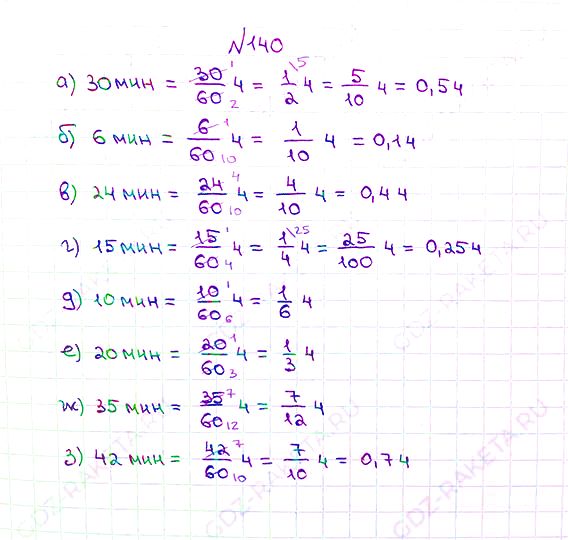 №140
а) 30 мин = 30/60 ч = 1/2 ч = 5/10 ч = 0,5 ч
б) 6 мин = 6/60 ч = 1/10 ч = 0,1 ч
в) 24 мин = 24/60 ч = 4/10 ч = 0,4 ч
г) 15 мин = 15/60 ч = 1/4 ч = 25/100 ч = 0,25 ч
д) 10 мин = 10/60 ч = 1/6 ч
е) 20 мин = 20/60 ч = 1/3 ч
ж) 35 мин = 35/60 ч = 7/12 ч
з) 42 мин = 42/60 ч = 7/10 ч = 0,7 ч
GDZ-RAKETA.RU